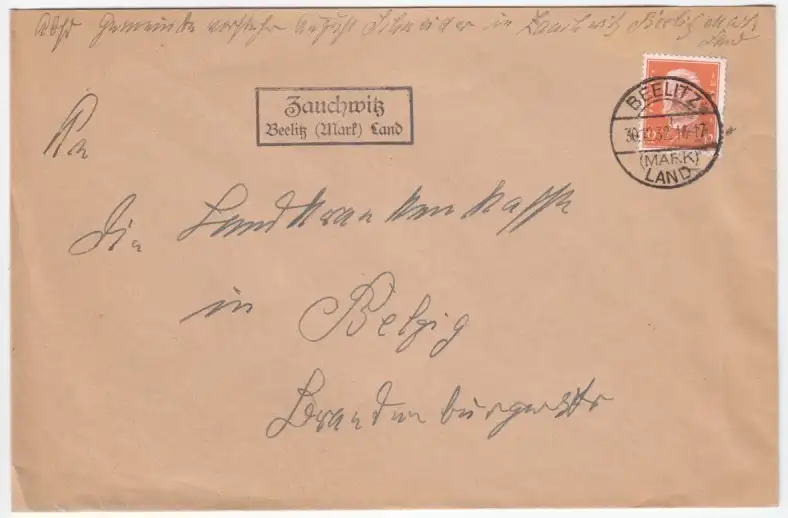 Abs. Gemeindevorsteher August Schneider in Zauchwitz Beelitz Mark
Land
Zauchwitz
Beelitz (Mark) Land
BEELITZ
(MARK)
LAND
An
die Landkrankenkasse
in Belzig
Brandenburgerstr